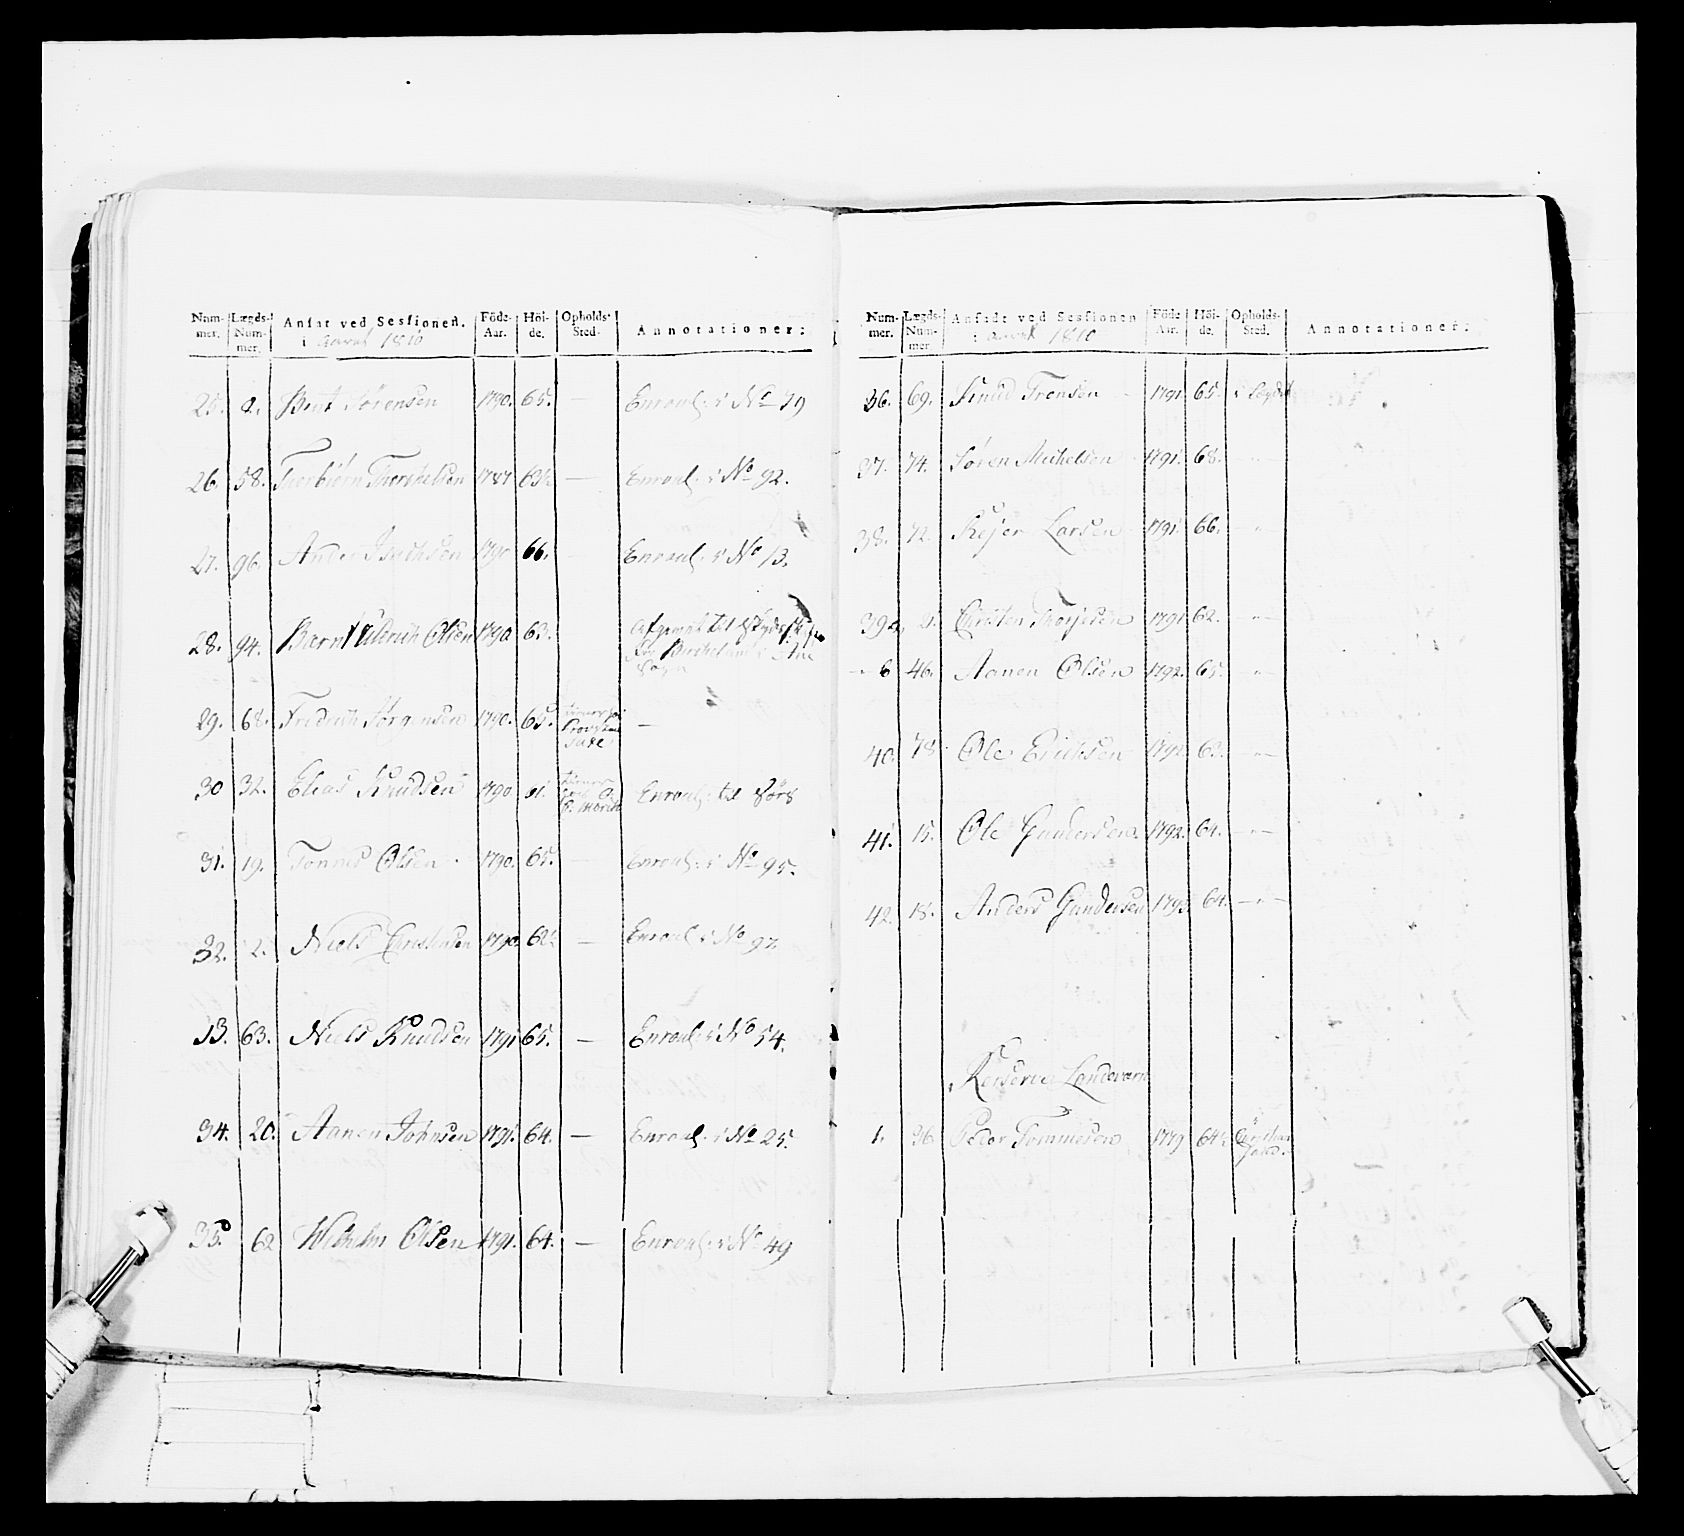 Num-mer. Lægds-Num-mer. Ansat ved Sessionen. i Aaret 1810 Föde-Aar. Höi-de. Opholds-Sted. Annotationer:
25. 2. Bent Sörensen 1790. 65. — Enroul: i No 79
26. 58. Torbiörn Thorkelsen 1787 63. — Enroul: i No 92.
27. 96. Anders Isachsen 1790 66. — Enroul: i No 13.
28. 94. Olsen 1790 63. til
29. 68. Fredrich Jörgensen 1790. 65. —
30 32. Elias Knudsen 1790 61. Enroul: til
31. 19. Tönnes Olsen 1790. 65. — Enroul: i No 95.
32. 2. Niels Christensen 1790. 62 — Enroul i No 97
33. 63. Niels Knudsen 1791 65. — Enroul: i No 54.
34. 20. Aanen Johnsen 1791. 64. — Enroul: i No 25.
35. 62 Wilhelm Olsen 1791. 64. — Enroul: i No 49
Num-mer. Lægds-Num-mer. Ansadt ved Sessionen i Aaret 1810 Föde-Aar. Höi-de. Opholds-Sted. Annotationer:
36. 69. Knud 1791 65. i Lægdet
37. 74. Sören Michelsen 1791. 68. — " —
38. 72. Larsen 1791. 66. — " —
39 a. 21. Christen 1791 62. — " —
— " b 46. Aanen Olsen 1792. 65. — " —
40. 78. Ole Erichsen 1792 63. — " —
41. 15. Ole Gundersen. 1792. 64. — " —
42. 18. Anders Gundersen 1793 64. — " —
Reserve Landeværn
1. 36 Peder Tommesen 1779 64